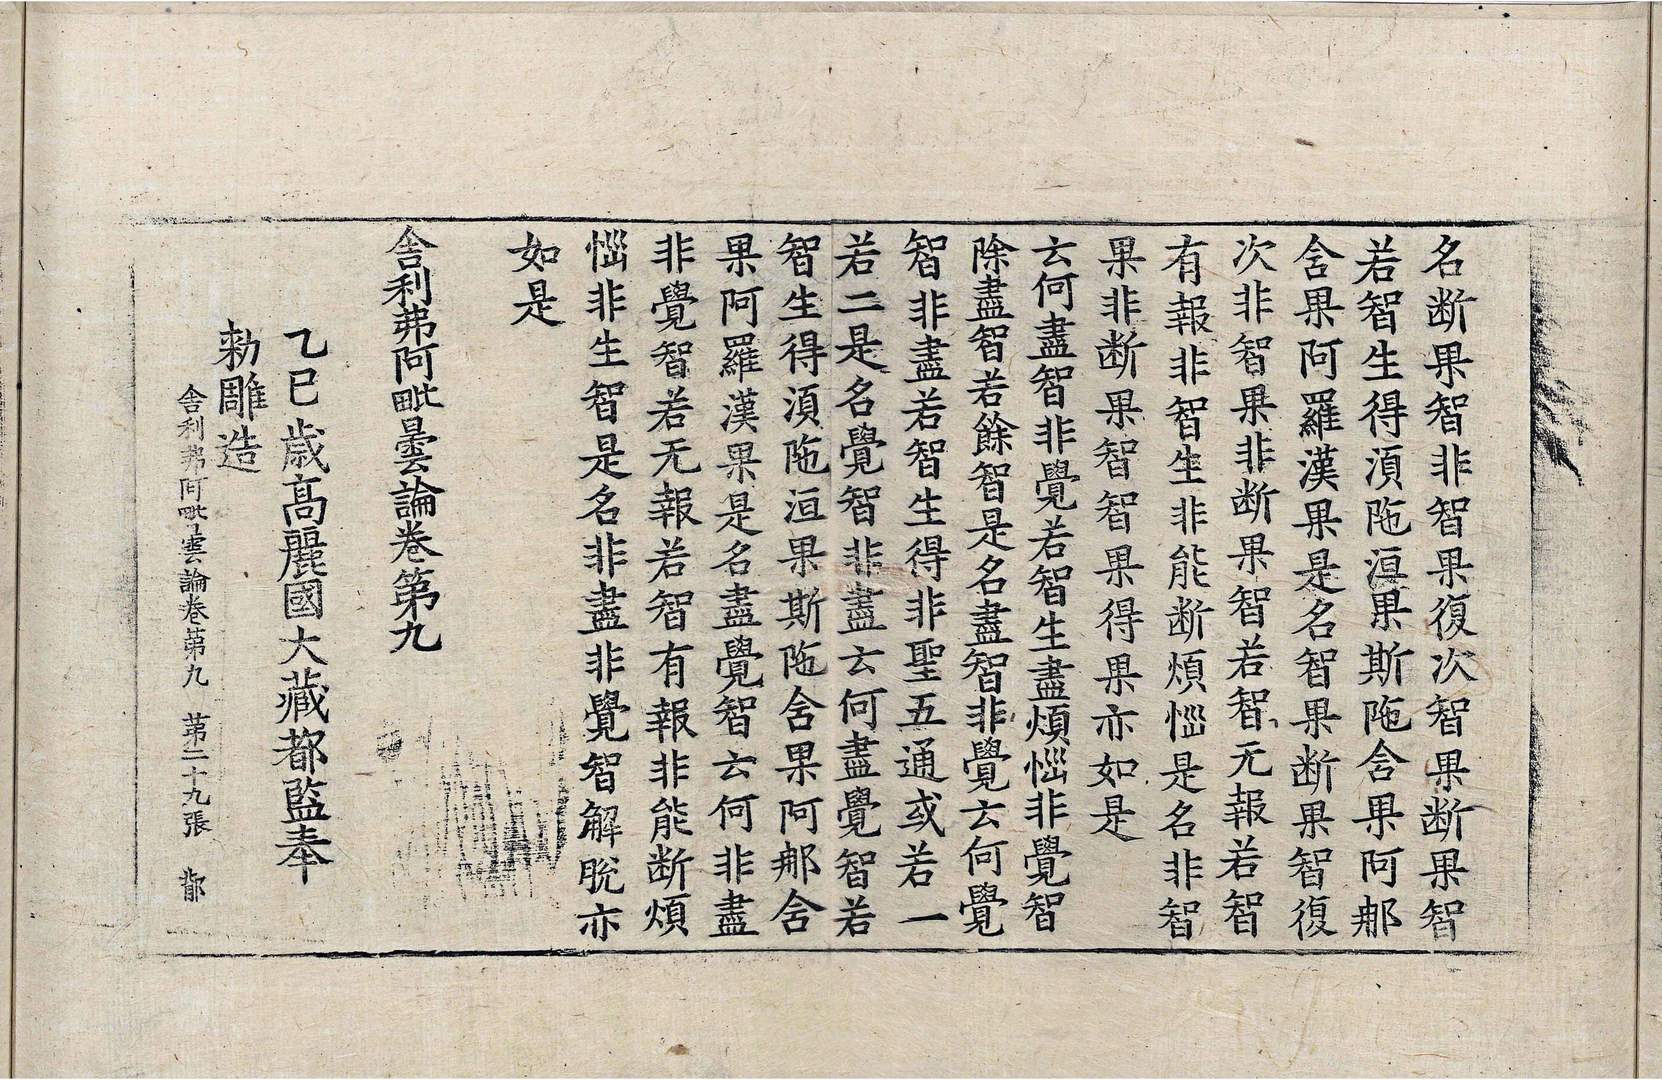 名断果智非智果復次智果断果智
若智生得湏陁洹果斯陁含果阿那
含果阿羅漢果是名智果断果智復
次非智果非断果智若智无報若智
有報非智生非能断煩惱是名非智
果非断果智智果得果亦如是
云何盡智非覺若智生盡煩惱非覺智
除盡智若餘智是名盡智非覺云何覺
智非盡若智生得非聖五通或若一
若二是名覺智非盡云何盡覺智若
智生得湏陁洹果斯陁含果阿那含
果阿羅漢果是名盡覺智云何非盡
非覺智若无報若智有報非能断煩
惱非生智是名非盡非覺智解脫亦
如是
舍利弗阿毗曇論卷第九
乙巳歳高麗國大藏都監奉
勑雕造
舍利弗阿毗曇論卷第九 第二十九張 鄁